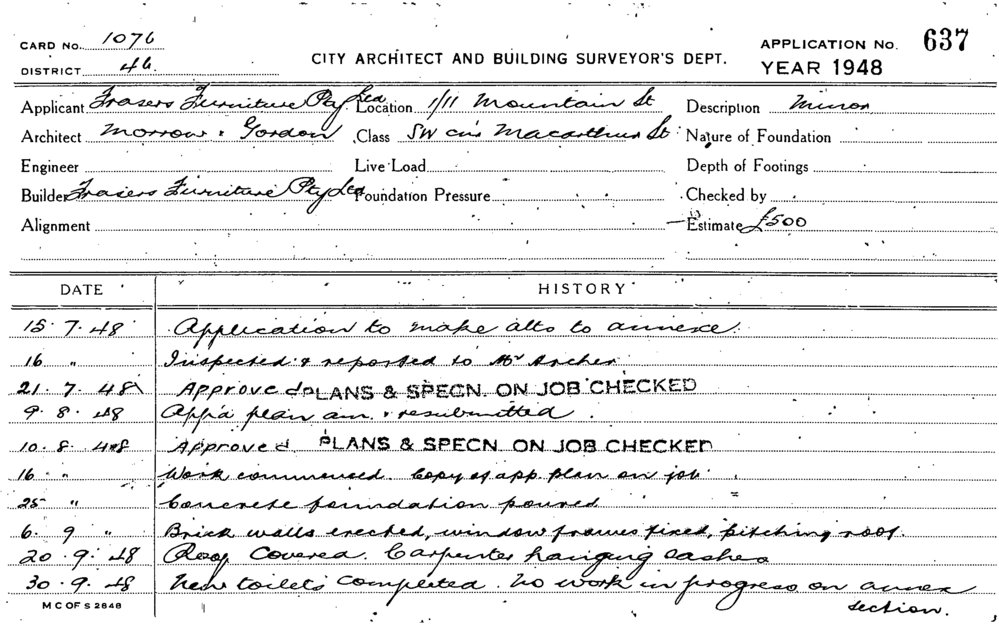 CARD No. 1076
DISTRICT 46
CITY ARCHITECT AND BUILDING SURVEYOR'S DEPT.
APPLICATION No. 637
YEAR 1948
Applicant Frasers Furniture Pty Ltd Location 1/11 Mountain St Description Minor
Architect Morrow & Gordon Class SW cnr Macarthur St Nature of Foundation
Engineer Live Load Depth of Footings
Builder Frasers Furniture Pty Ltd Foundation Pressure Checked by
Alignment Estimate £500
DATE HISTORY
15.7.48 Application to make alts to annexe.
16 " Inspected & reported to Mr Archer
21.7.48 Approved PLANS & SPECN. ON JOB CHECKED
9.8.48 App'd plan am. & resubmitted.
10.8.48 Approved PLANS & SPECN. ON JOB CHECKED
16 " Work commenced. Copy of app. plan on job.
25 " Concrete foundation poured
6.9 " Brick walls erected, window frames fixed, pitching roof.
20.9.48 Roof covered. Carpenter hanging sashes
30.9.48 New toilets completed. No work in progress on annex
section.
M C OF S 2848